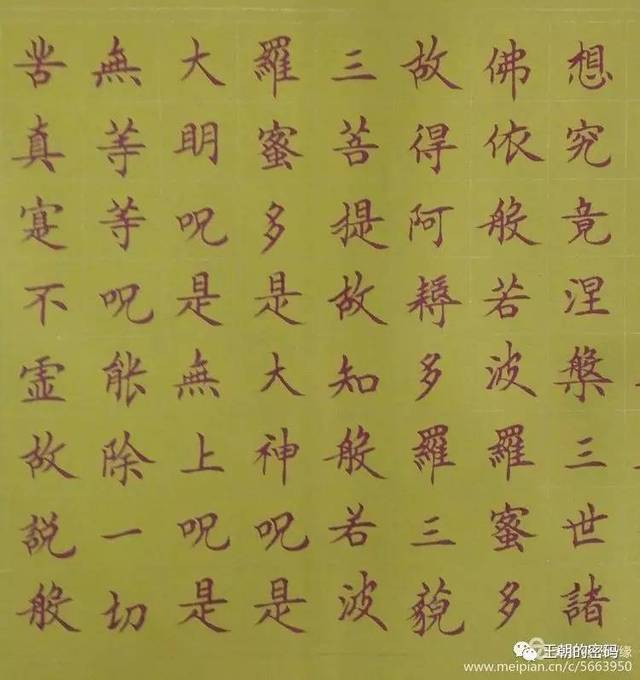 想究竟涅槃三世諸
佛依般若波羅蜜多
故得阿耨多羅三藐
三菩提故知般若波
羅蜜多是大神呪是
大明呪是無上呪是
無等等呪能除一切
苦真寔不虛故説般
王朝的密码
缘
www.meipian.cn/c/5663950